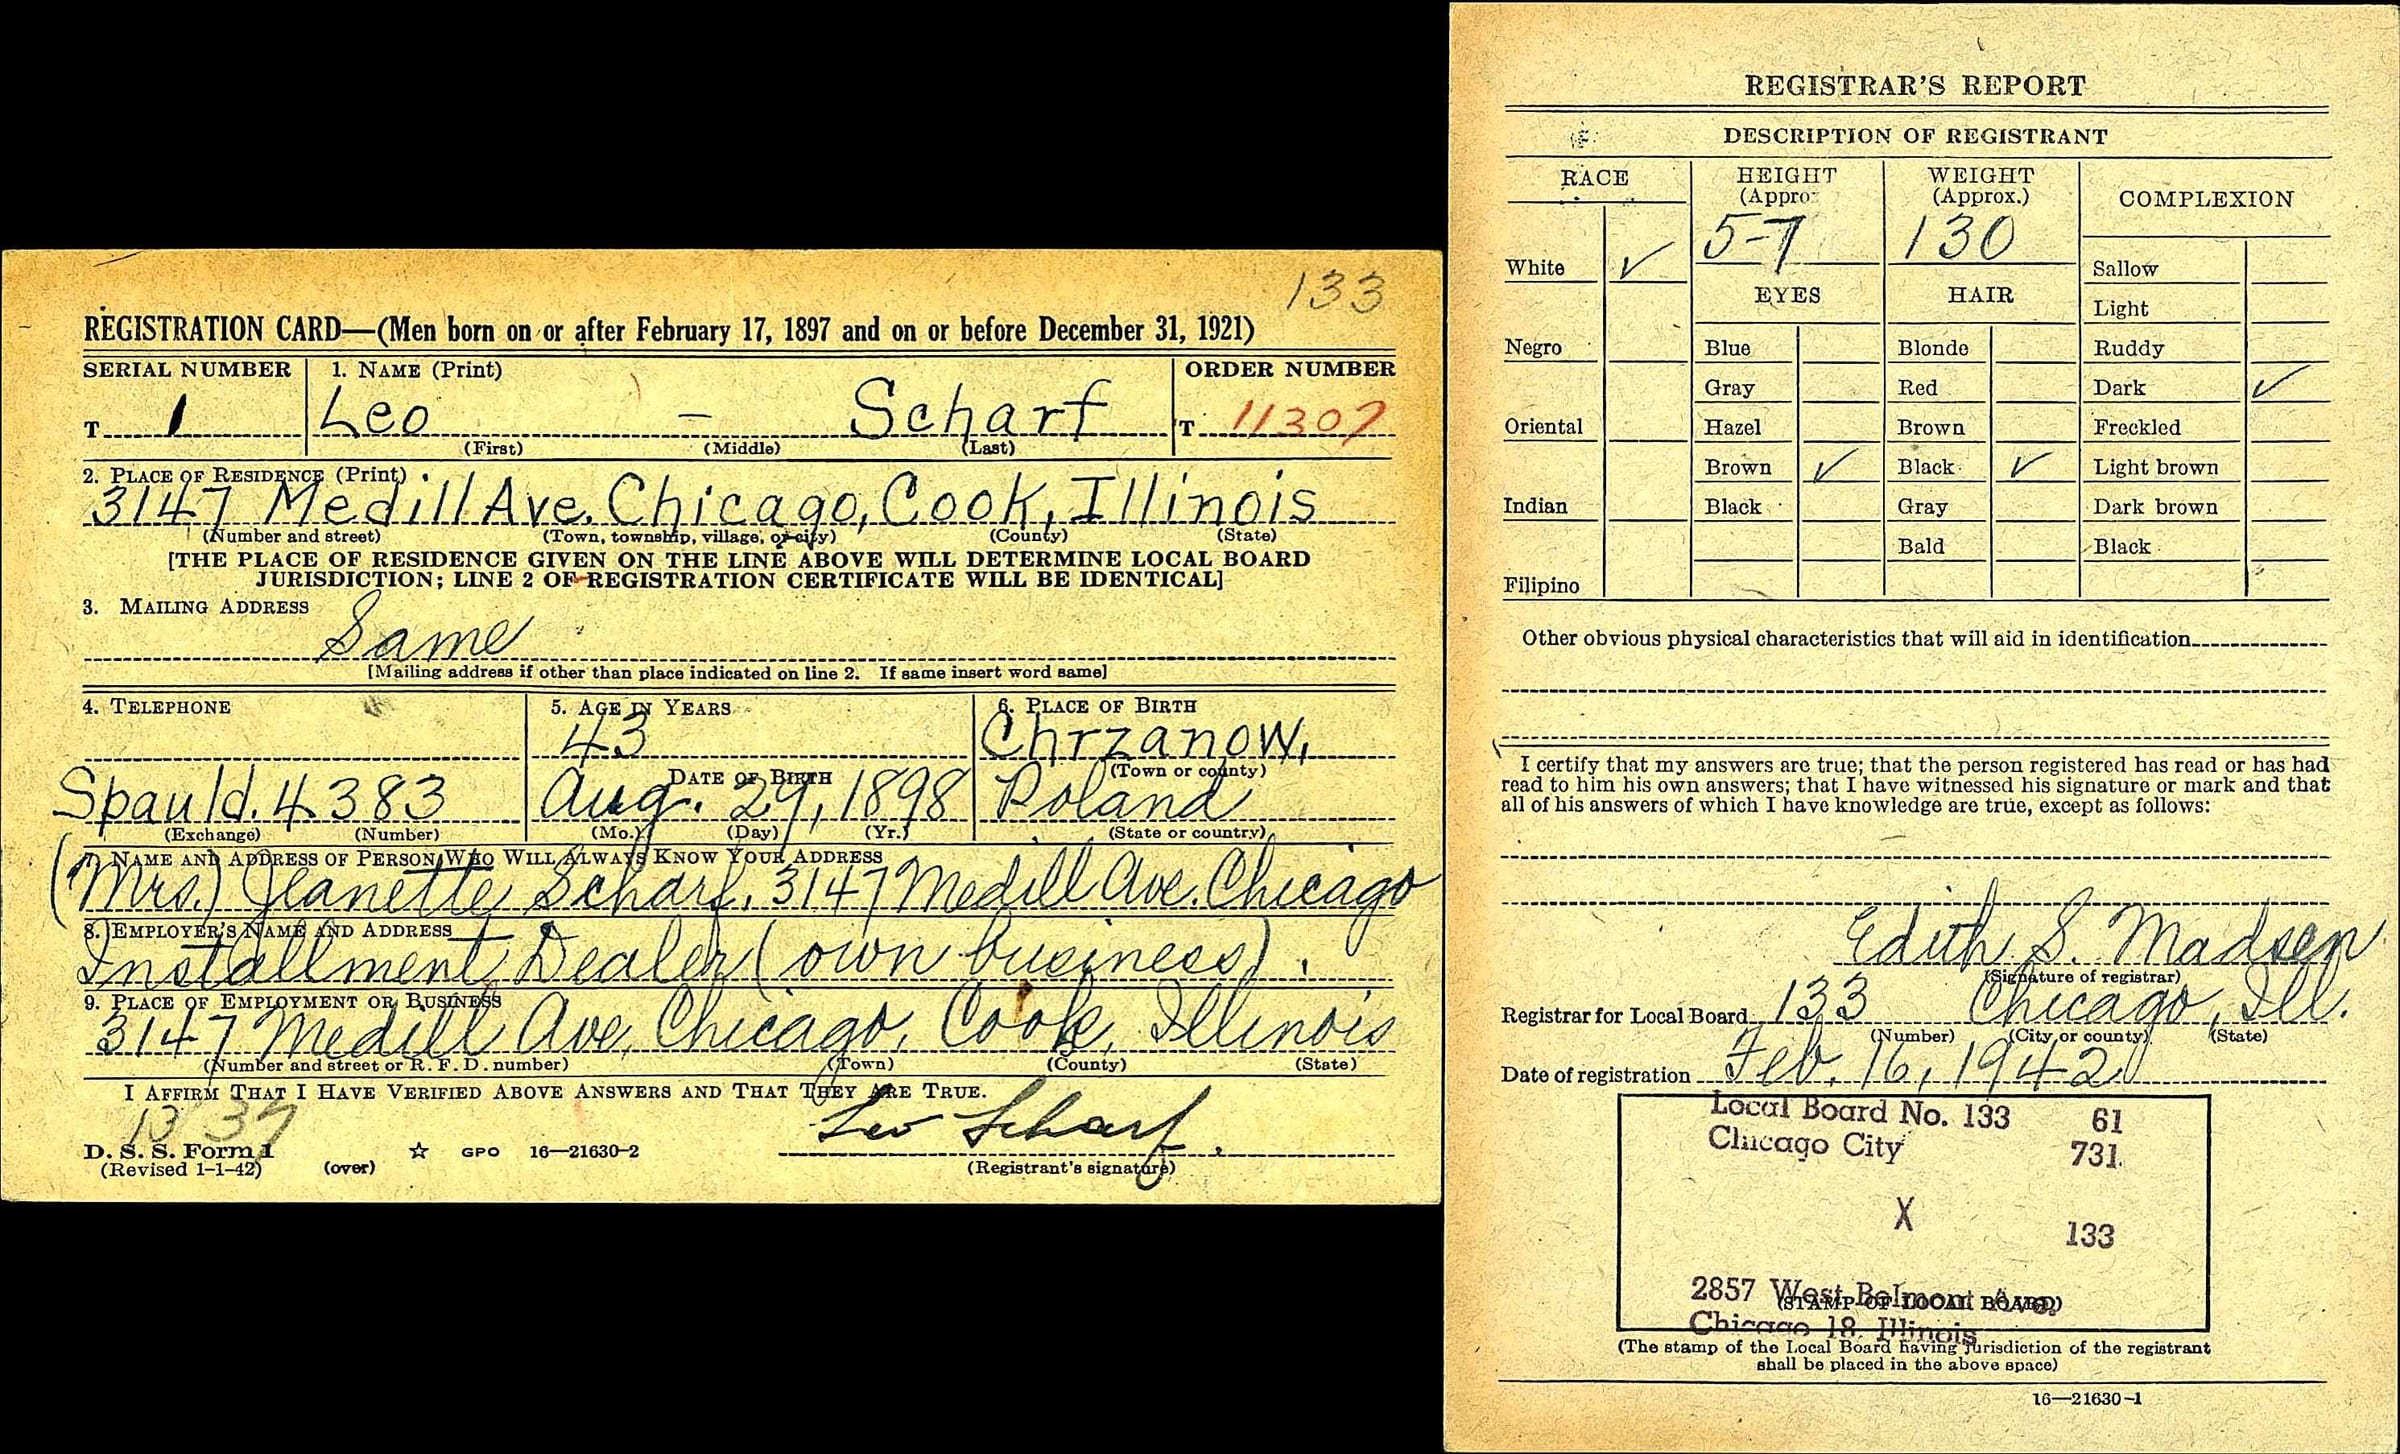 133
REGISTRATION CARD—(Men born on or after February 17, 1897 and on or before December 31, 1921)
SERIAL NUMBER 1. NAME (Print) ORDER NUMBER
T 1 Leo — Scharf T 11307
(First) (Middle) (Last)
2. PLACE OF RESIDENCE (Print)
3147 Medill Ave. Chicago, Cook, Illinois
(Number and street) (Town, township, village, or city) (County) (State)
[THE PLACE OF RESIDENCE GIVEN ON THE LINE ABOVE WILL DETERMINE LOCAL BOARD
JURISDICTION; LINE 2 OF REGISTRATION CERTIFICATE WILL BE IDENTICAL]
3. MAILING ADDRESS
Same
[Mailing address if other than place indicated on line 2. If same insert word same]
4. TELEPHONE 5. AGE IN YEARS 6. PLACE OF BIRTH
43 Chrzanow,
DATE OF BIRTH (Town or county)
Spauld. 4383 Aug. 29, 1898 Poland
(Exchange) (Number) (Mo.) (Day) (Yr.) (State or country)
7. NAME AND ADDRESS OF PERSON WHO WILL ALWAYS KNOW YOUR ADDRESS
(Mrs.) Jeanette Scharf, 3147 Medill Ave. Chicago
8. EMPLOYER'S NAME AND ADDRESS
Installment Dealer (own business).
9. PLACE OF EMPLOYMENT OR BUSINESS
3147 Medill Ave, Chicago, Cook, Illinois
(Number and street or R. F. D. number) (Town) (County) (State)
I AFFIRM THAT I HAVE VERIFIED ABOVE ANSWERS AND THAT THEY ARE TRUE.
Leo Scharf.
D. S. S. Form 1
(Revised 1-1-42) (over) ☆ GPO 16—21630-2 (Registrant's signature)
REGISTRAR'S REPORT
DESCRIPTION OF REGISTRANT
RACE HEIGHT (Approx WEIGHT (Approx.) COMPLEXION
5-7 130
White ✓ Sallow
EYES HAIR
Light
Negro Blue Blonde Ruddy
Gray Red Dark ✓
Oriental Hazel Brown Freckled
Brown ✓ Black ✓ Light brown
Indian Black Gray Dark brown
Bald Black
Filipino
Other obvious physical characteristics that will aid in identification
I certify that my answers are true; that the person registered has read or has had
read to him his own answers; that I have witnessed his signature or mark and that
all of his answers of which I have knowledge are true, except as follows:
Edith S. Madsen
(Signature of registrar)
Registrar for Local Board 133 Chicago, Ill.
(Number) (City or county) (State)
Date of registration Feb. 16, 1942
Local Board No. 133 61
Chicago City 731
X
133
2857 West Belmont Ave.
(STAMP OF LOCAL BOARD)
Chicago 18, Illinois
(The stamp of the Local Board having jurisdiction of the registrant
shall be placed in the above space)
16—21630-1